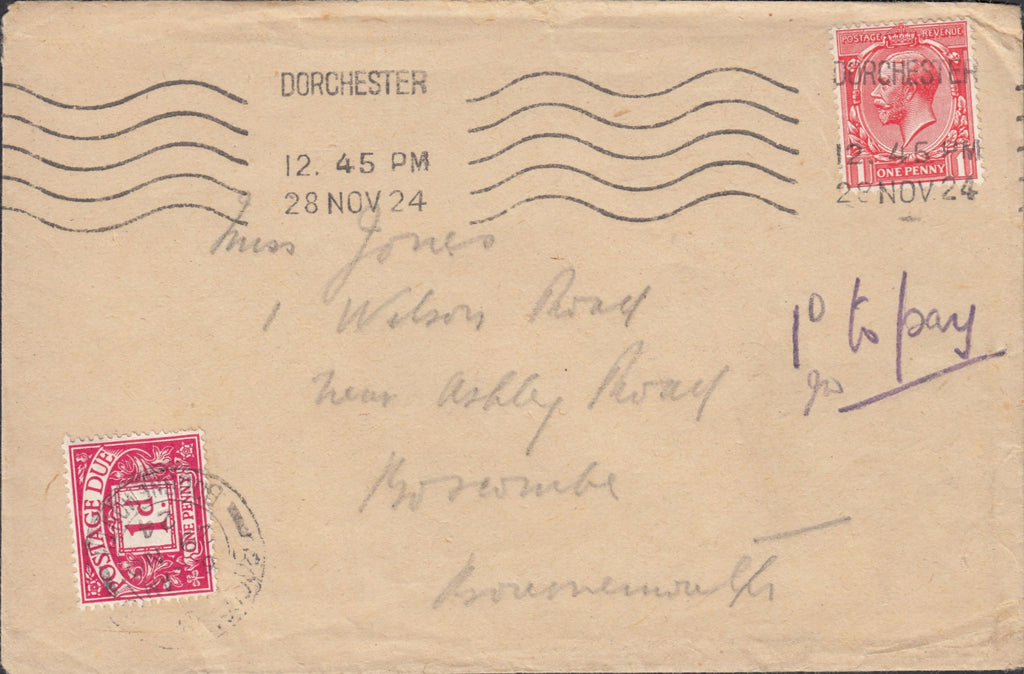 POSTAGE REVENUE
DORCHESTER
DORCHESTER
12. 45 PM
12. 45 PM
1 ONE PENNY 1
28 NOV 24
28 NOV 24
Miss Jones
1 Wilson Road
near Ashley Road
Boscombe
Bournemouth
1D to pay
POSTAGE DUE
P.1
ONE PENNY